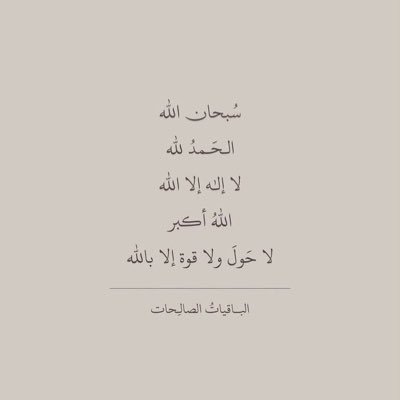 سُبحان الله
الـحَـمدُ لله
لا إلـٰه إلا الله
اللهُ أكبر
لا حَولَ ولا قوة إلا بالله
البـاقياتُ الصالِحات